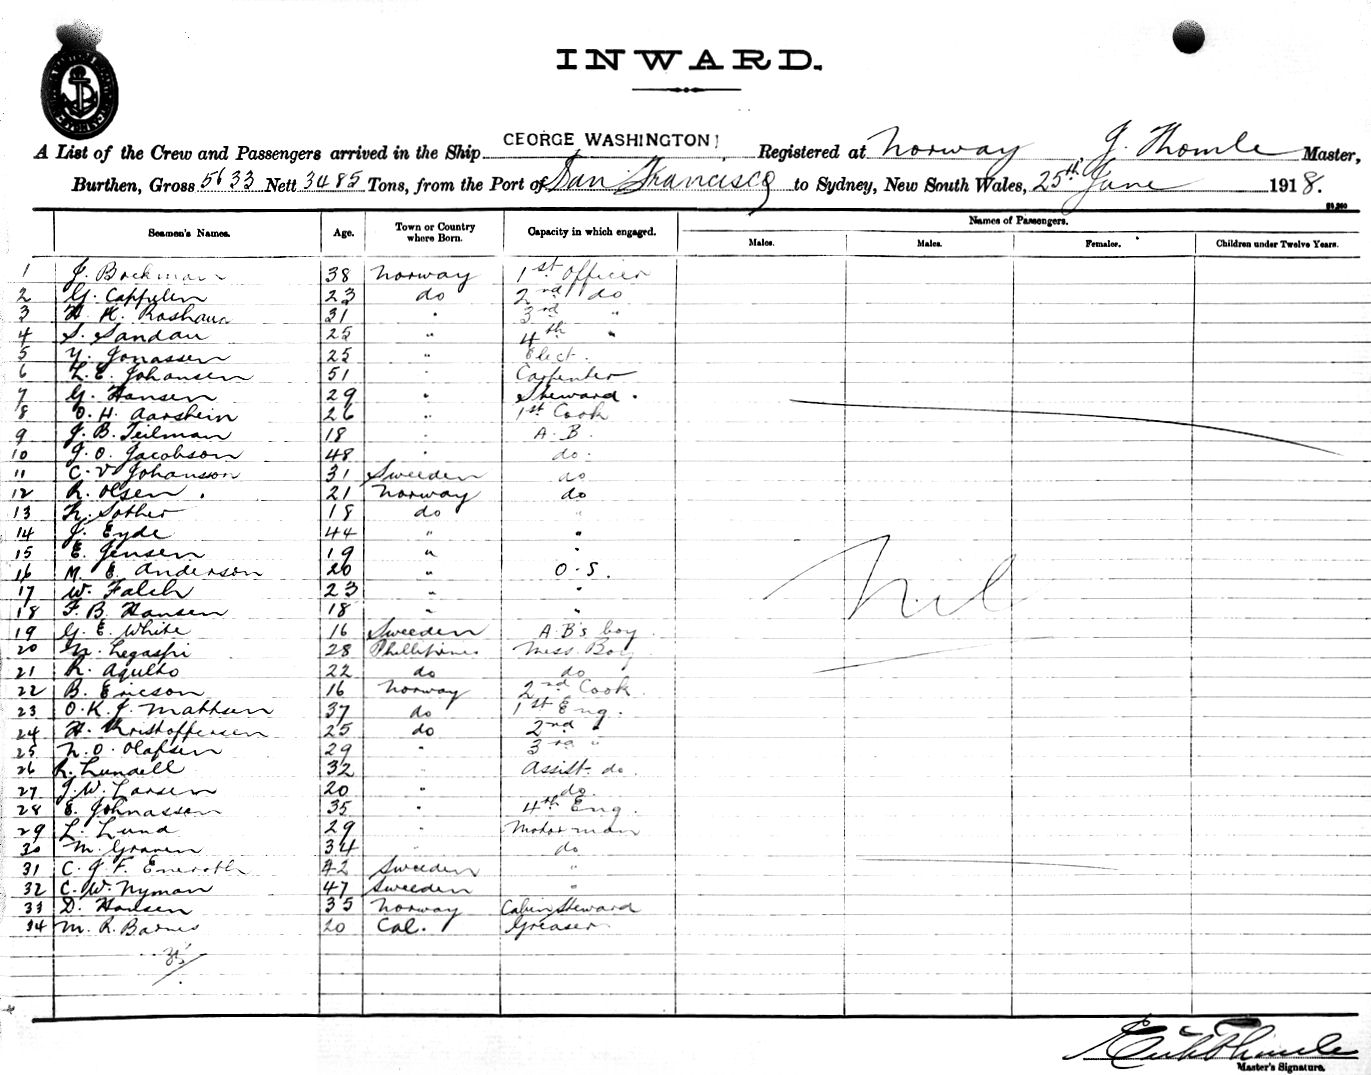 INWARD.
A List of the Crew and Passengers arrived in the Ship GEORGE WASHINGTON Registered at Norway, J. Thomle Master,
Burthen, Gross 5633 Nett 3485 Tons, from the Port of San Francisco to Sydney, New South Wales, 25th June 1918.
Names of Passengers.
Seamen's Names. Age. Town or Country where Born. Capacity in which engaged. Males. Males. Females. Children under Twelve Years.
1 J. Bockman 38 Norway 1st Officer
2 G. Cappelen 23 do 2nd do
3 31 " 3rd "
4 S. Sandau 25 " 4th "
5 Y. Jonassen 25 " Elect.
6 L. E. Johansen 51 " Carpenter
7 G. Hansen 29 " Steward.
8 O. H. Aarshein 26 " 1st Cook
9 J. B. Teilman 18 " A. B.
10 J. O. Jacobson 48 " do.
11 C. V. Johansson 31 Sweeden do
12 R. Olsen. 21 Norway do
13 K. Sother 18 do "
14 J. Eyde 44 " "
15 E. Jensen 19 " "
16 M. E. Anderson 20 " O.S.
17 W. Falch 23 " "
18 F. B. Hansen 18 " "
19 G. E. White 16 Sweeden A.B's boy
20 N. Legaspi 28 Phillipines Mess Boy
21 R. Agulto 22 do do
22 B. Ericson 16 Norway 2nd Cook
23 O. K. J. Mathsen 37 do 1st Eng.
24 H. Kristoffersen 25 do 2nd "
25 N. O. Olafsen 29 " 3rd "
26 R. Lundell 32 " Assist. do.
27 J. W. Larsen 20 " do.
28 E. Johnasson 35 " 4th Eng.
29 L. Lund 29 " Motorman
30 M. Graven 34 " do
31 C. J. F. Eneroth 42 Sweeden "
32 C. W. Nyman 47 Sweeden "
33 D. Hansen 35 Norway Cabin Steward
34 M. R. Barnes 20 Cal. Greaser
Nil
Master's Signature.